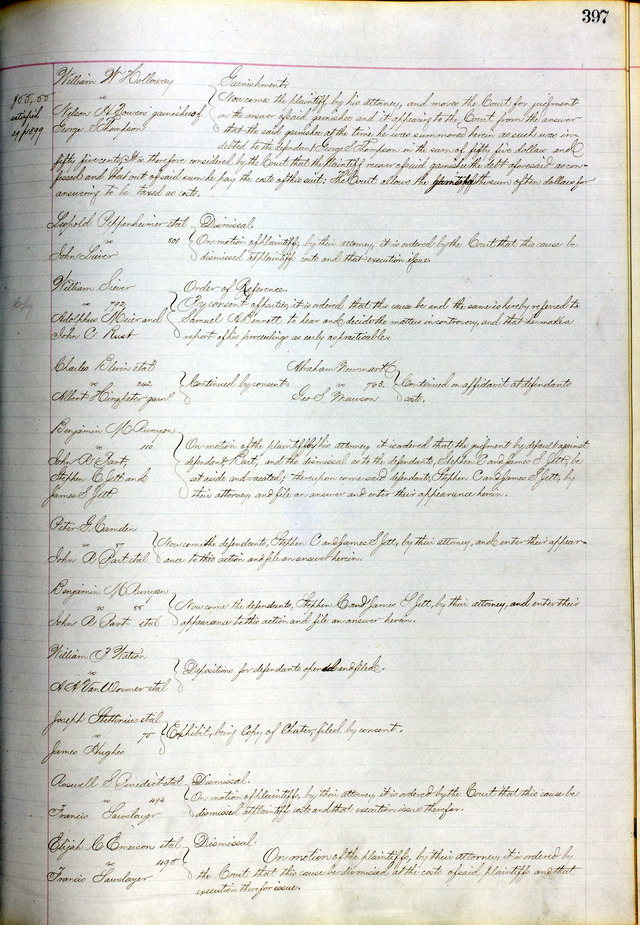 397
William W Holloway
Garnishment
$55,00
Now come the plaintiff by his attorney, and moves the Court for judgment
vs
Nelson A Bowen garnishee of
on the answer of said garnishee and it appearing to the Court from the answer
George S Thompson
that the said garnishee at the time he was summoned herein as such was in-
debted to the defendant George S Thompson in the sum of fifty five dollars and
fifty five cents, It is therefore considered by the Court that the Plaintiff recover of said garnishee the debt aforesaid as con-
fessed and that out of said sum he pay the costs of this suit; The Court allows the garnishee the sum of ten dollars for
answering to be taxed as costs.
Leopold Peppenheimer et al
Dismissal.
vs 801
On motion of plaintiffs, by their attorney, it is ordered by the Court that this cause be
John Siever
dismissed at plaintiffs costs and that execution issue.
William Siever
Order of Reference.
vs 742
By consent of parties, it is ordered that this cause be and the same is hereby referred to
Adolphus Meier and
Samuel A Bennett to hear and decide the matters in controversy, and that he make a
John C Rust
report of his proceedings as early as practicable.
Charles Blevin et al
Abraham Newmark
vs 242
Continued by consent
vs 763.
Continued on affidavit at defendants
Albert garns
Geo S
costs.
Benjamin M Runyan
vs 110
On motion of the plaintiff by his attorney it is ordered that the judgment by default against
John R Part,
defendant Part, and the dismissal as to the defendants, Stephen C and James S Jett, be
Stephen C Jett and
set aside and vacated; thereupon come said defendants, Stephen C and James S Jett, by
James S Jett
their attorney, and file an answer and enter their appearance herein.
Peter G Camden
vs 87
Now come the defendants, Stephen C and James S Jett, by their attorney, and enter their appear-
John R Part et al
ance to this action and file an answer herein.
Benjamin M Runyan
vs 88
Now come the defendants, Stephen C and James S Jett, by their attorney, and enter their
John R Part et al
appearance to this action and file an answer herein.
William F Watson
vs
Depositions for defendants opened and filed.
A A Van Wormer et al
Joseph Stettinius et al
vs 75
Exhibit, being Copy of Chater, filed by consent.
James Hughes
Roswell S Benedict et al
Dismissal.
vs 494
On motion of plaintiffs, by their attorney, it is ordered by the Court that this cause be
Francis Sawslayer
dismissed at plaintiffs costs and that execution issue therefor.
Elijah C Emerson et al
Dismissal.
vs 495
On motion of the plaintiffs, by their attorney, it is ordered by
Francis Sawslayer
the Court that this cause be dismissed at the costs of said plaintiffs and that
execution therefor issue.